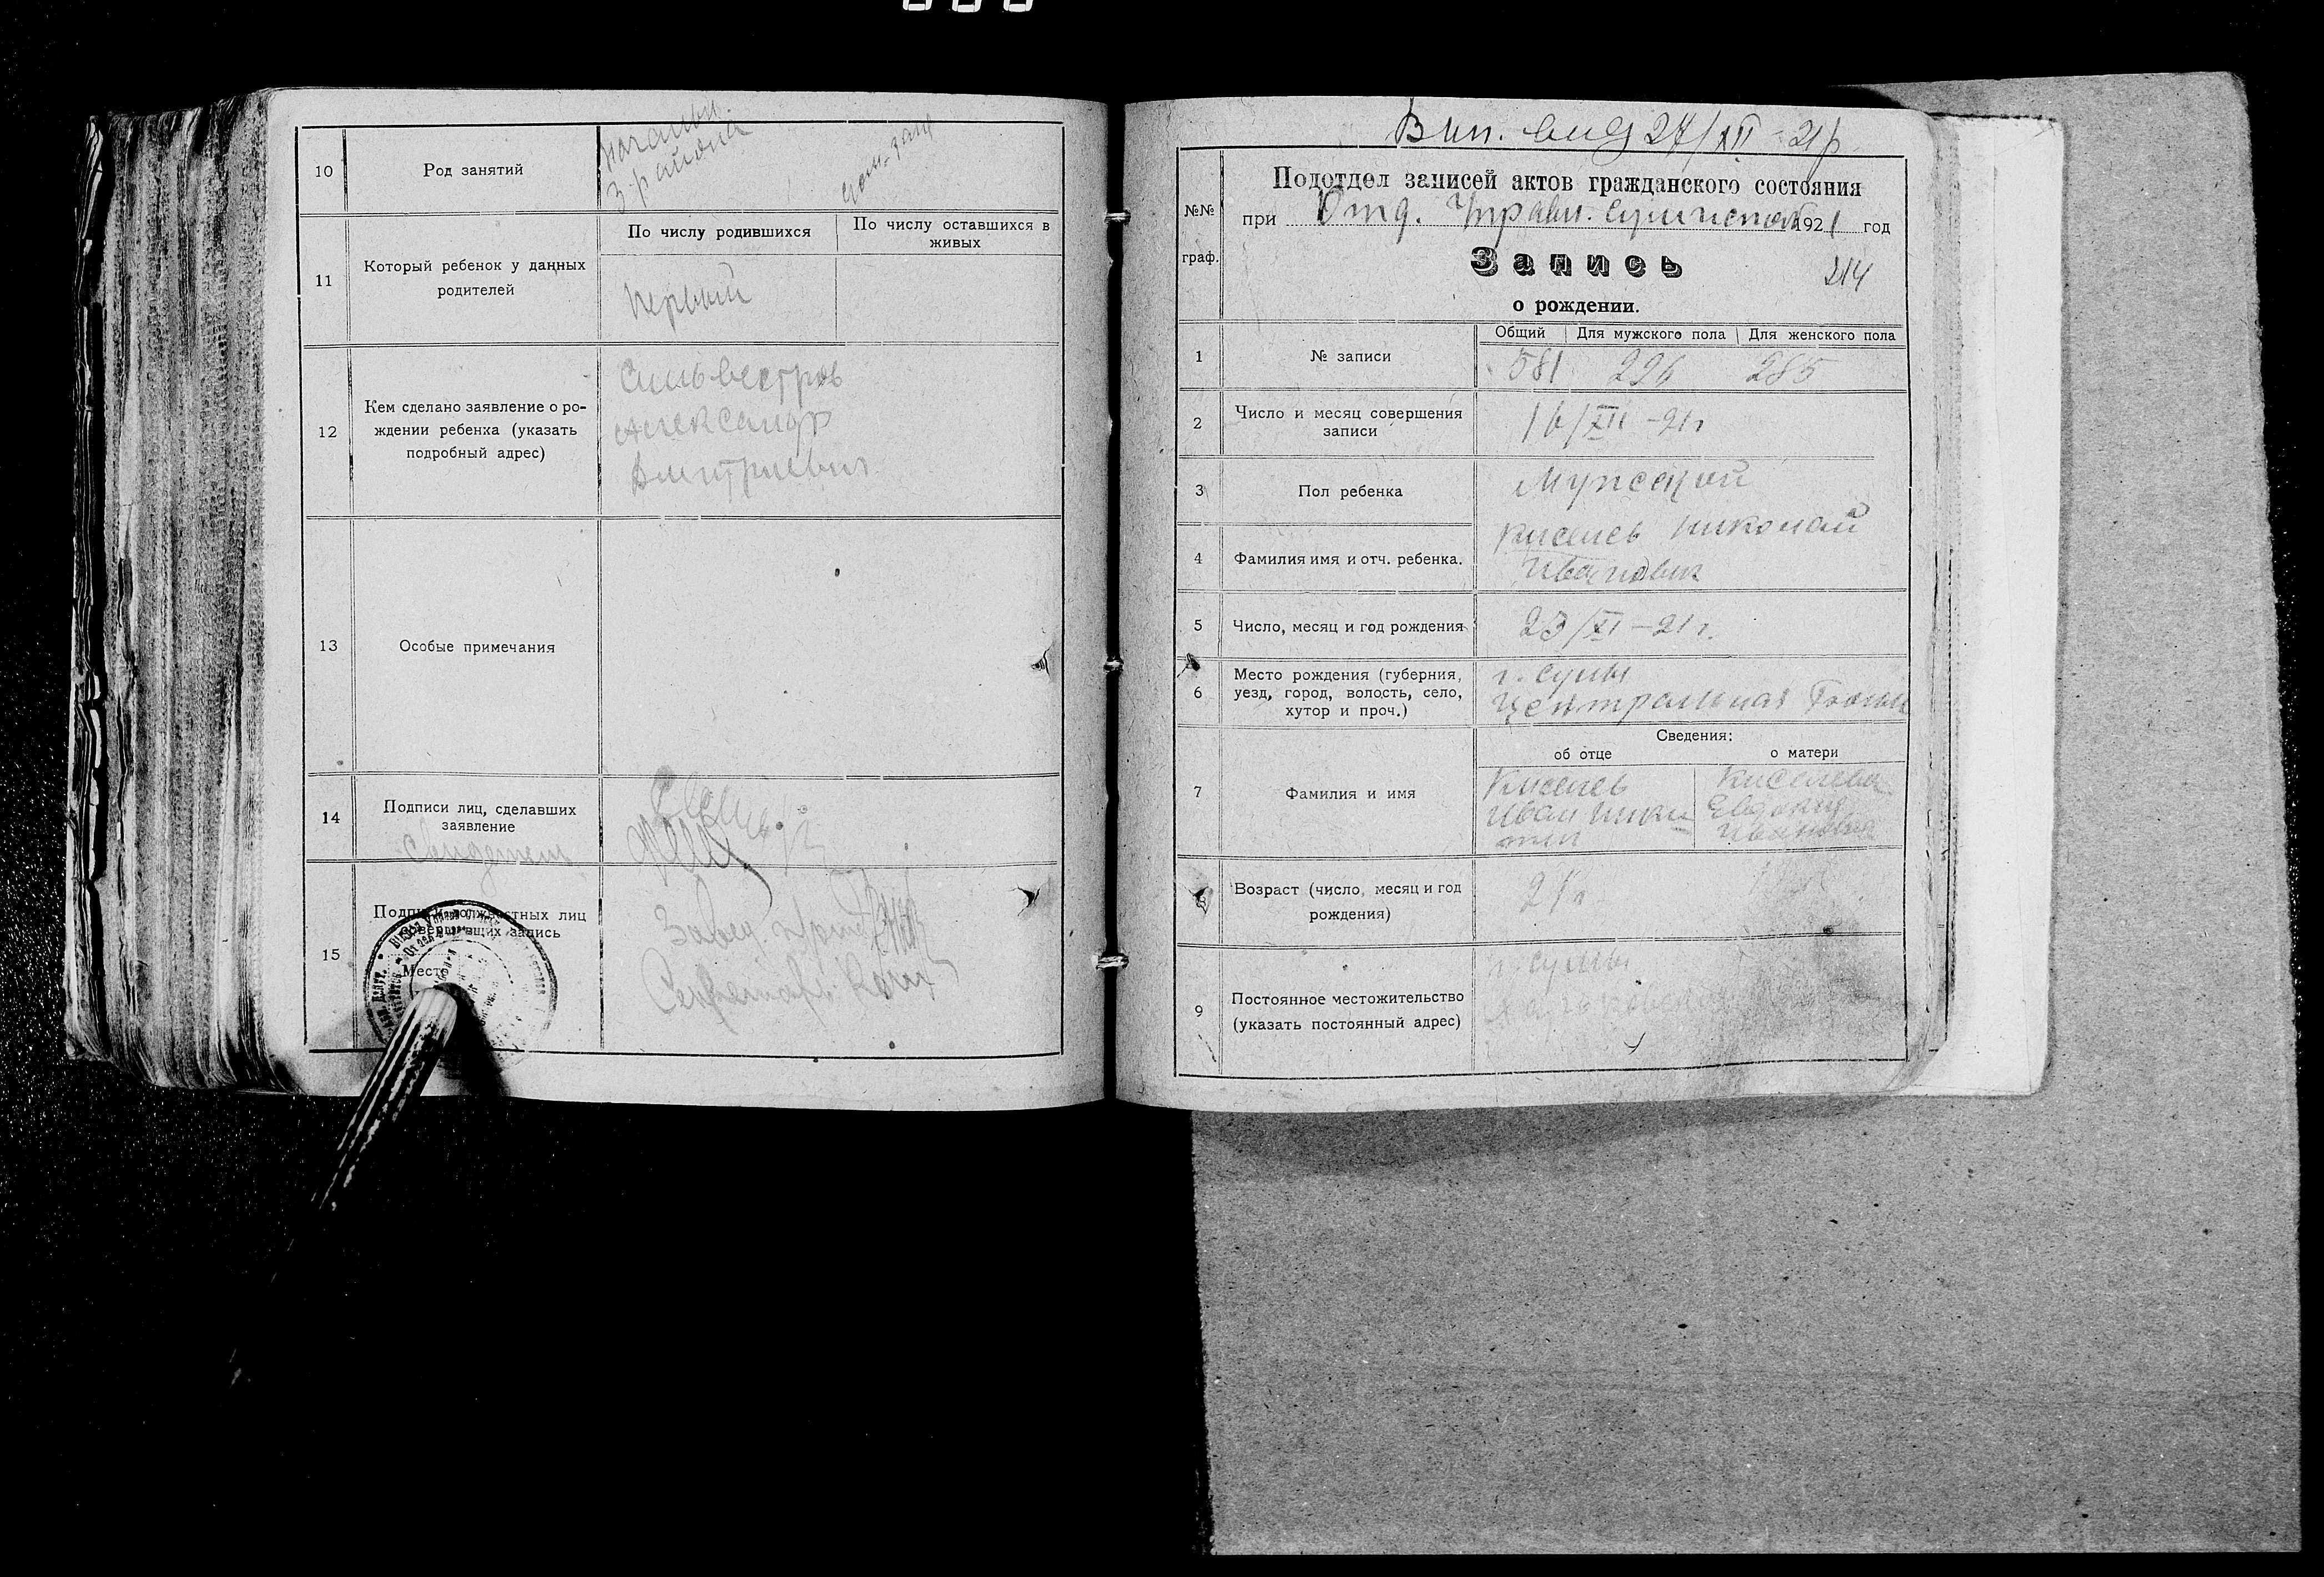 10
Род занятий
начальн.
3 района
11
Который ребенок у данных
родителей
По числу родившихся
По числу оставшихся в
живых
первый
12
Кем сделано заявление о ро-
ждении ребенка (указать
подробный адрес)
Сильвестров
Александр
Дмитриевич
13
Особые примечания
14
Подписи лиц, сделавших
заявление
свидетель
15
Подписи должностных лиц
совершивших запись
Место
Завед.
Секретарь
Вип. вид 27/XII-21р.
№№
граф.
Подотдел записей актов гражданского состояния
при Отд. Управл. Сумиспол 1921 год
Запись
214
о рождении.
1
№ записи
Общий Для мужского пола Для женского пола
581 296 285
2
Число и месяц совершения
записи
16/XII-21г
3
Пол ребенка
Мужской
4
Фамилия имя и отч. ребенка.
Киселев Николай
Иванович
5
Число, месяц и год рождения
23/XI-21г.
6
Место рождения (губерния,
уезд, город, волость, село,
хутор и проч.)
г. Сумы
Центральная
Сведения:
об отце о матери
7
Фамилия и имя
Киселев
Иван Ники
тич
Киселева
Евдокия
Ивановна
8
Возраст (число, месяц и год
рождения)
9
Постоянное местожительство
(указать постоянный адрес)
г. Сумы